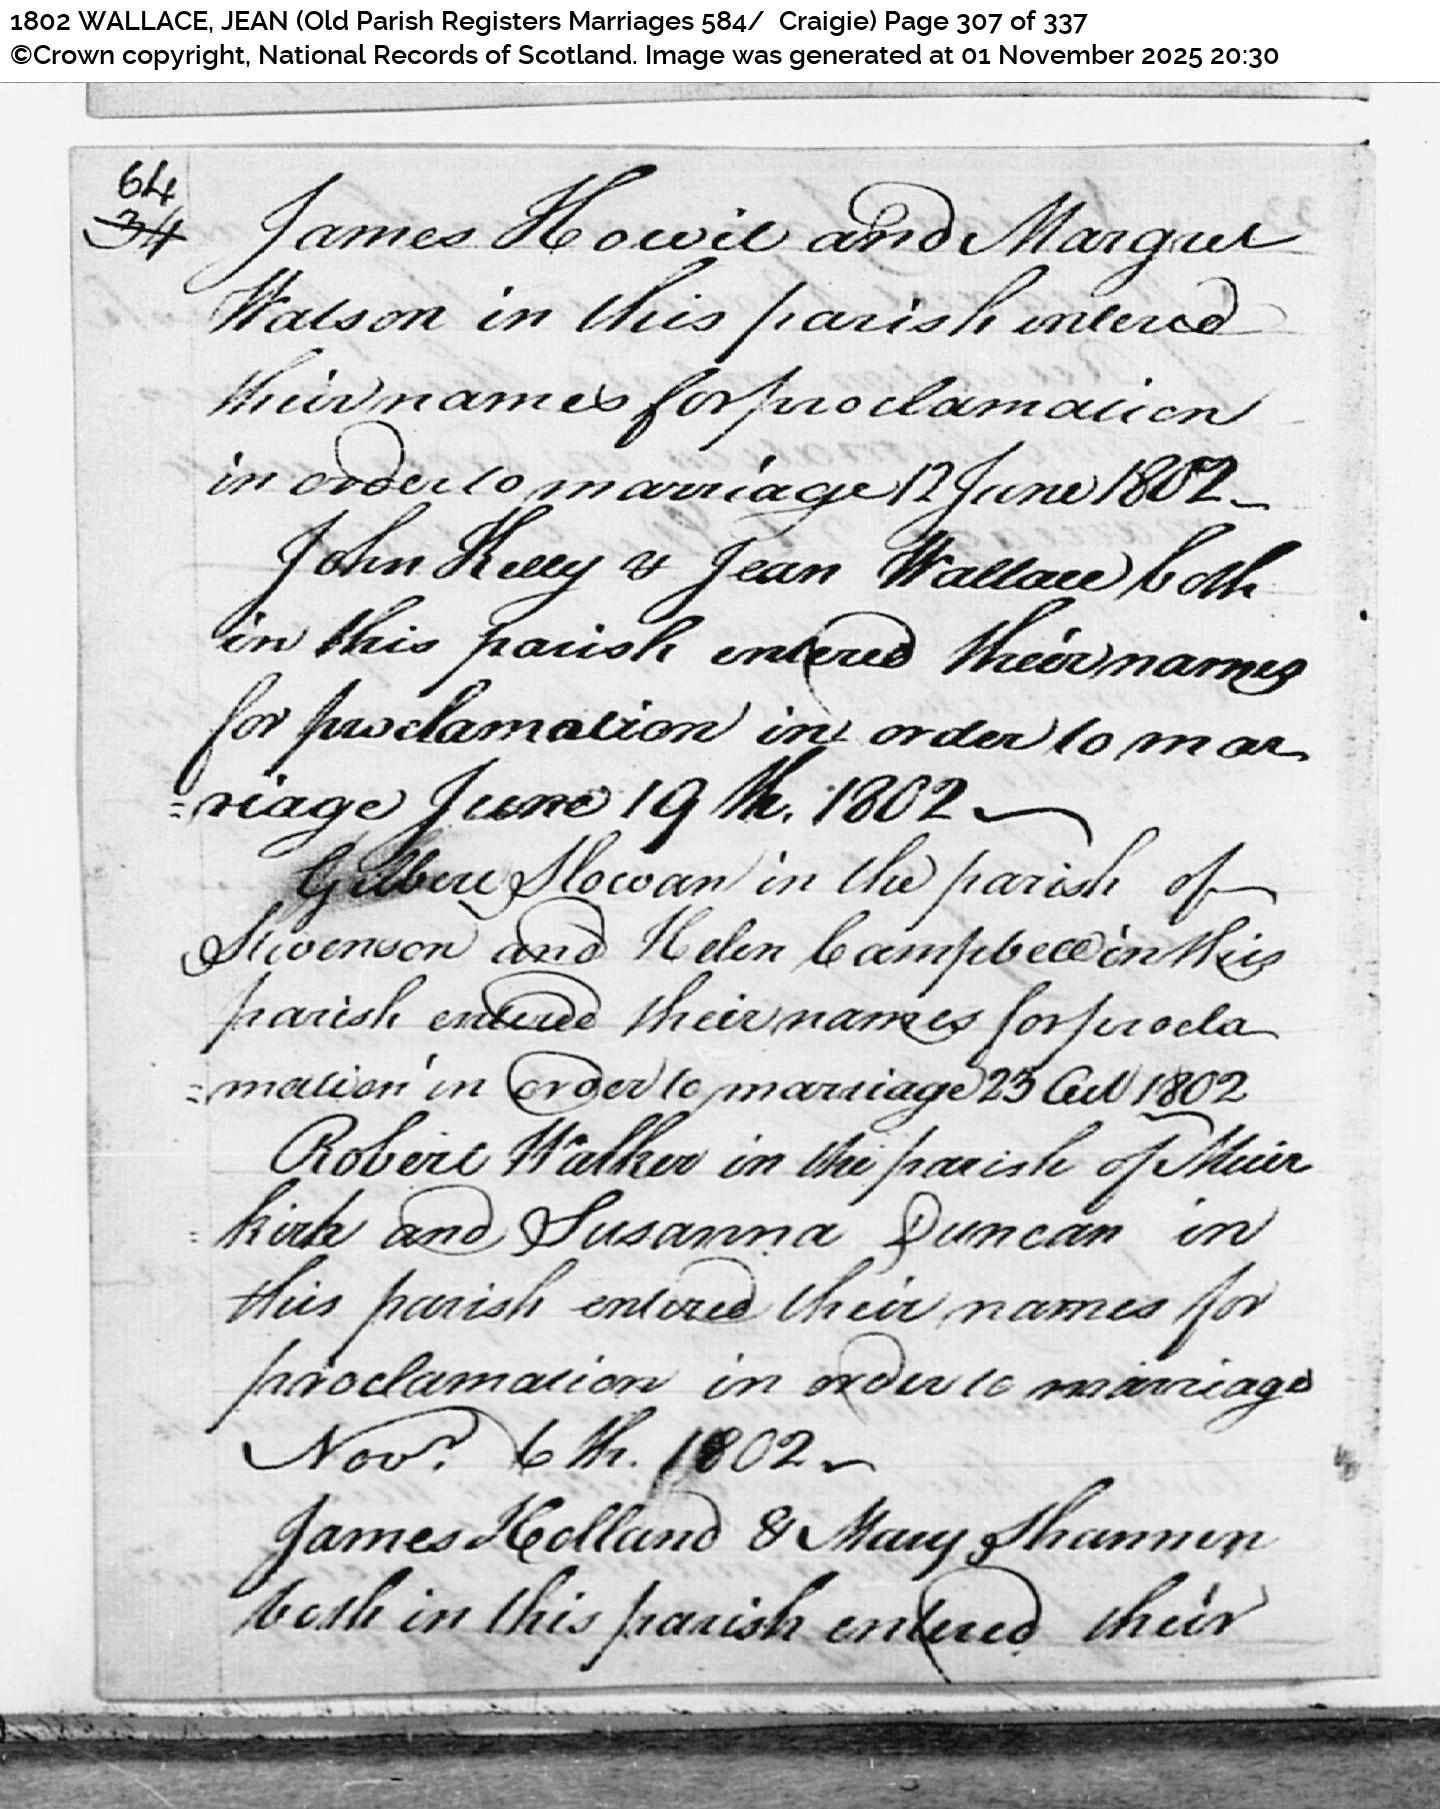 1802 WALLACE, JEAN (Old Parish Registers Marriages 584/ Craigie) Page 307 of 337
©Crown copyright, National Records of Scotland. Image was generated at 01 November 2025 20:30
64
34
James Howit and Margret
Watson in this parish entered
their names for proclamation
in order to marriage 12 June 1802
John Kelly & Jean Wallace both
in this parish entered their names
for proclamation in order to mar
=riage June 19 th. 1802
Gilbert Slowan in the parish of
Stevenson and Helen Campbell in this
parish entered their names for procla
=mation in order to marriage 23 Oct 1802
Robert Walker in the parish of Muir
=kirk and Susanna Duncan in
this parish entered their names for
proclamation in order to marriage
Novr. 6 th. 1802
James Holland & Mary Shannon
both in this parish entered their